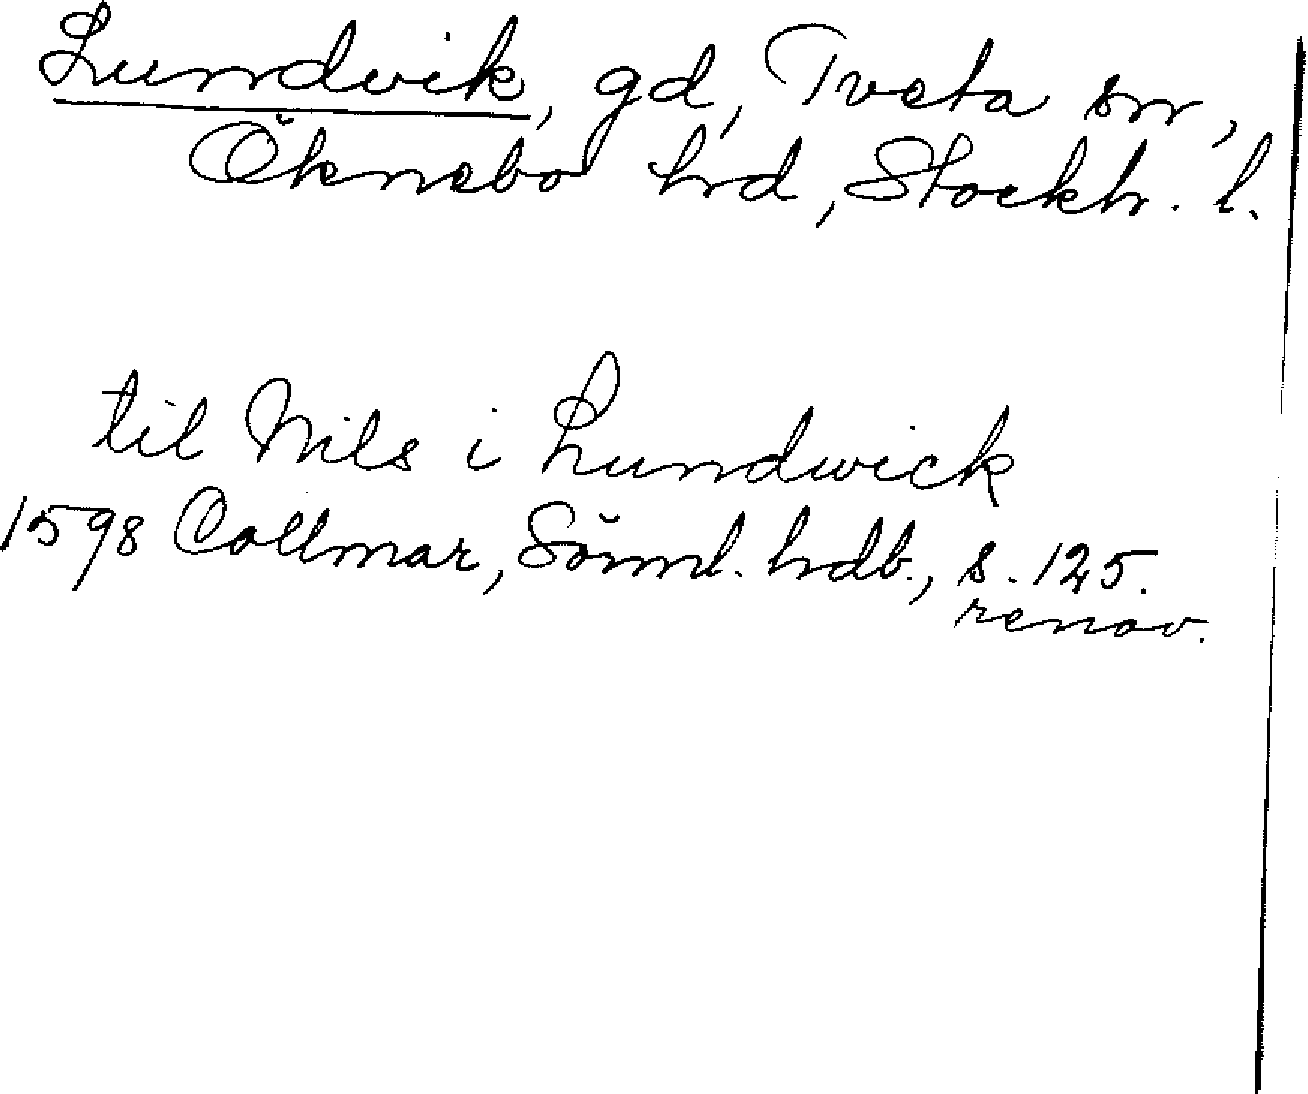 Lundvik, gd, Tveta sn,
Öknebo hrd, Stockh. l.
til Nils i Lundwick
1598 Collmar, Sörml. hdb., s. 125.
renov.